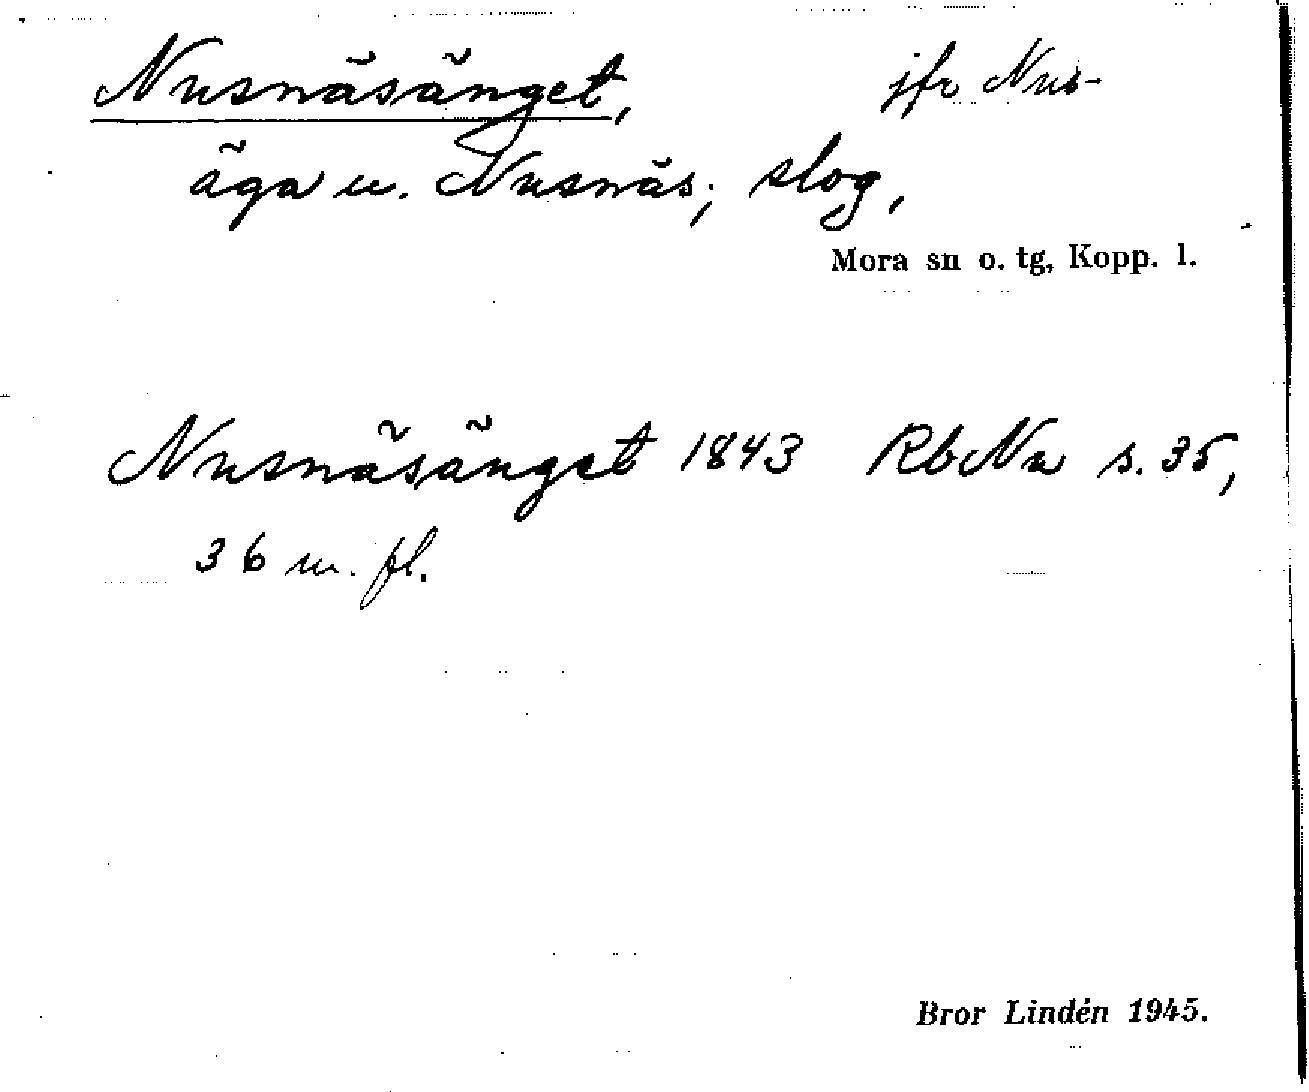 Nusnäsänget, jfr Nus-
äga u. Nusnäs; slog,
Mora sn o. tg, Kopp. l.
Nusnäsänget 1843 RbNu s. 35,
36 m. fl.
Bror Lindén 1945.